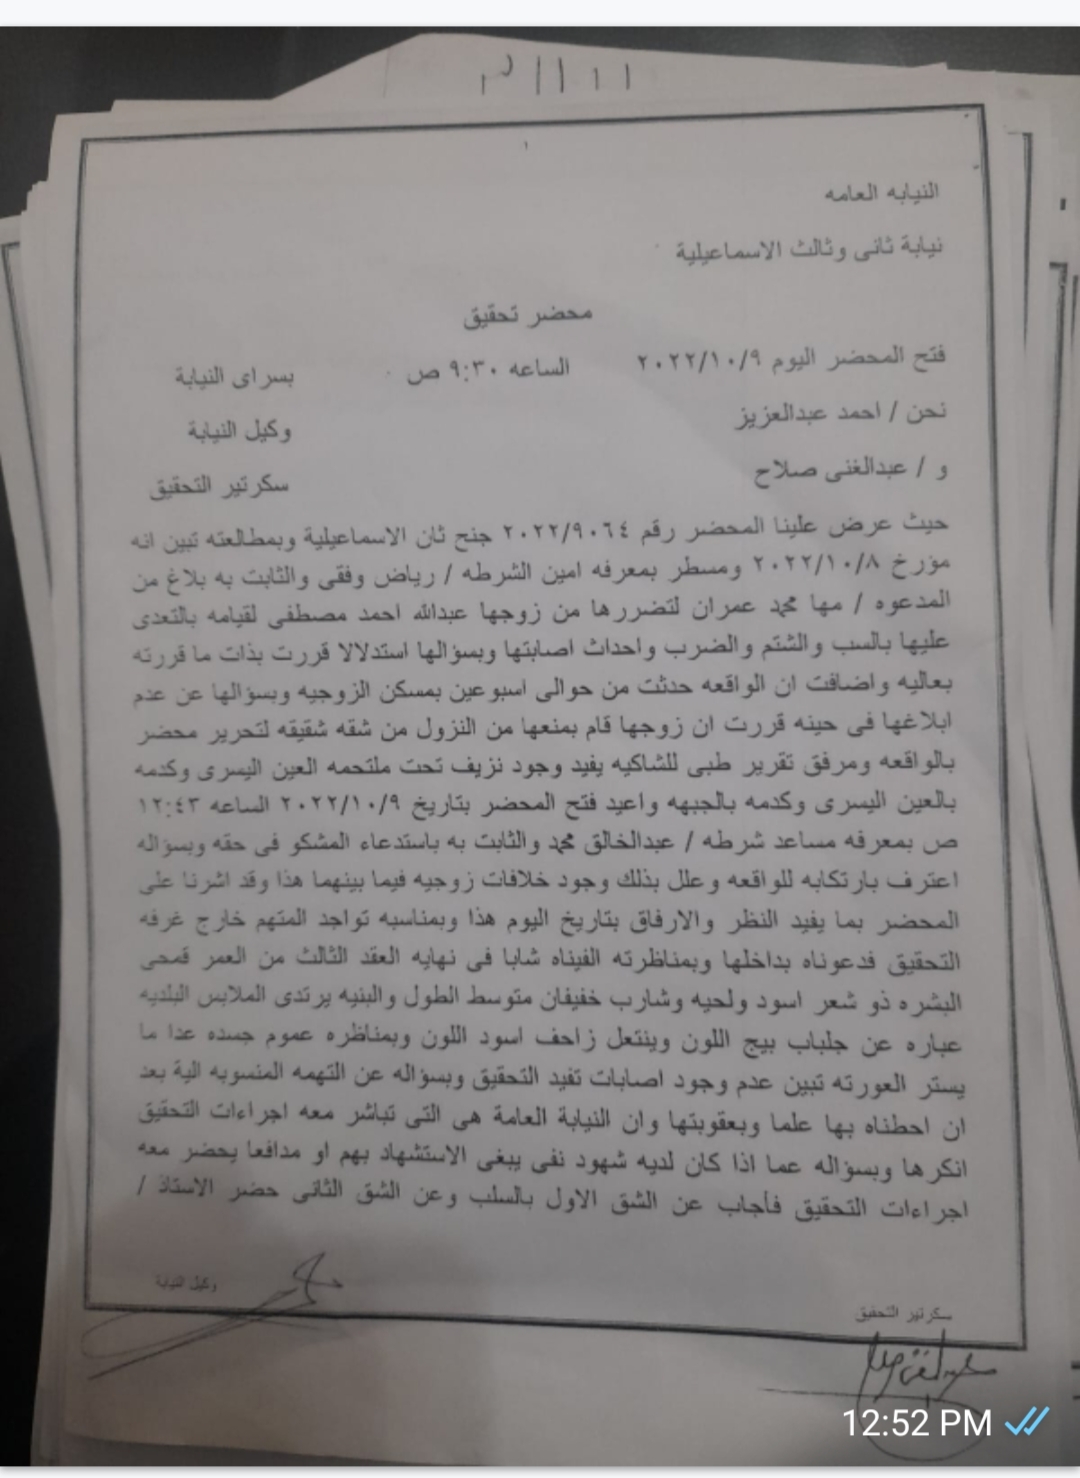 ١
النيابه العامه
نيابة ثانى وثالث الاسماعيلية
محضر تحقيق
فتح المحضر اليوم ٢٠٢٢/١٠/٩ الساعه ٩:٣٠ ص بسراى النيابة
نحن / احمد عبدالعزيز وكيل النيابة
و / عبدالغنى صلاح سكرتير التحقيق
حيث عرض علينا المحضر رقم ٢٠٢٢/٩٠٦٤ جنح ثان الاسماعيلية وبمطالعته تبين انه
مؤرخ ٢٠٢٢/١٠/٨ ومسطر بمعرفه امين الشرطه / رياض وفقى والثابت به بلاغ من
المدعوه / مها محمد عمران لتضررها من زوجها عبدالله احمد مصطفى لقيامه بالتعدى
عليها بالسب والشتم والضرب واحداث اصابتها وبسؤالها استدلالا قررت بذات ما قررته
بعاليه واضافت ان الواقعه حدثت من حوالى اسبوعين بمسكن الزوجيه وبسؤالها عن عدم
ابلاغها فى حينه قررت ان زوجها قام بمنعها من النزول من شقه شقيقه لتحرير محضر
بالواقعه ومرفق تقرير طبى للشاكيه يفيد وجود نزيف تحت ملتحمه العين اليسرى وكدمه
بالعين اليسرى وكدمه بالجبهه واعيد فتح المحضر بتاريخ ٢٠٢٢/١٠/٩ الساعه ١٢:٤٣
ص بمعرفه مساعد شرطه / عبدالخالق محمد والثابت به باستدعاء المشكو فى حقه وبسؤاله
اعترف بارتكابه للواقعه وعلل بذلك وجود خلافات زوجيه فيما بينهما هذا وقد اشرنا على
المحضر بما يفيد النظر والارفاق بتاريخ اليوم هذا وبمناسبه تواجد المتهم خارج غرفه
التحقيق فدعوناه بداخلها وبمناظرته الفيناه شابا فى نهايه العقد الثالث من العمر قمحى
البشره ذو شعر اسود ولحيه وشارب خفيفان متوسط الطول والبنيه يرتدى الملابس البلديه
عباره عن جلباب بيج اللون وينتعل زاحف اسود اللون وبمناظره عموم جسده عدا ما
يستر العورته تبين عدم وجود اصابات تفيد التحقيق وبسؤاله عن التهمه المنسوبه الية بعد
ان احطناه بها علما وبعقوبتها وان النيابة العامة هى التى تباشر معه اجراءات التحقيق
انكرها وبسؤاله عما اذا كان لديه شهود نفى يبغى الاستشهاد بهم او مدافعا يحضر معه
اجراءات التحقيق فأجاب عن الشق الاول بالسلب وعن الشق الثانى حضر الاستاذ /
وكيل النيابة
سكرتير التحقيق
12:52 PM